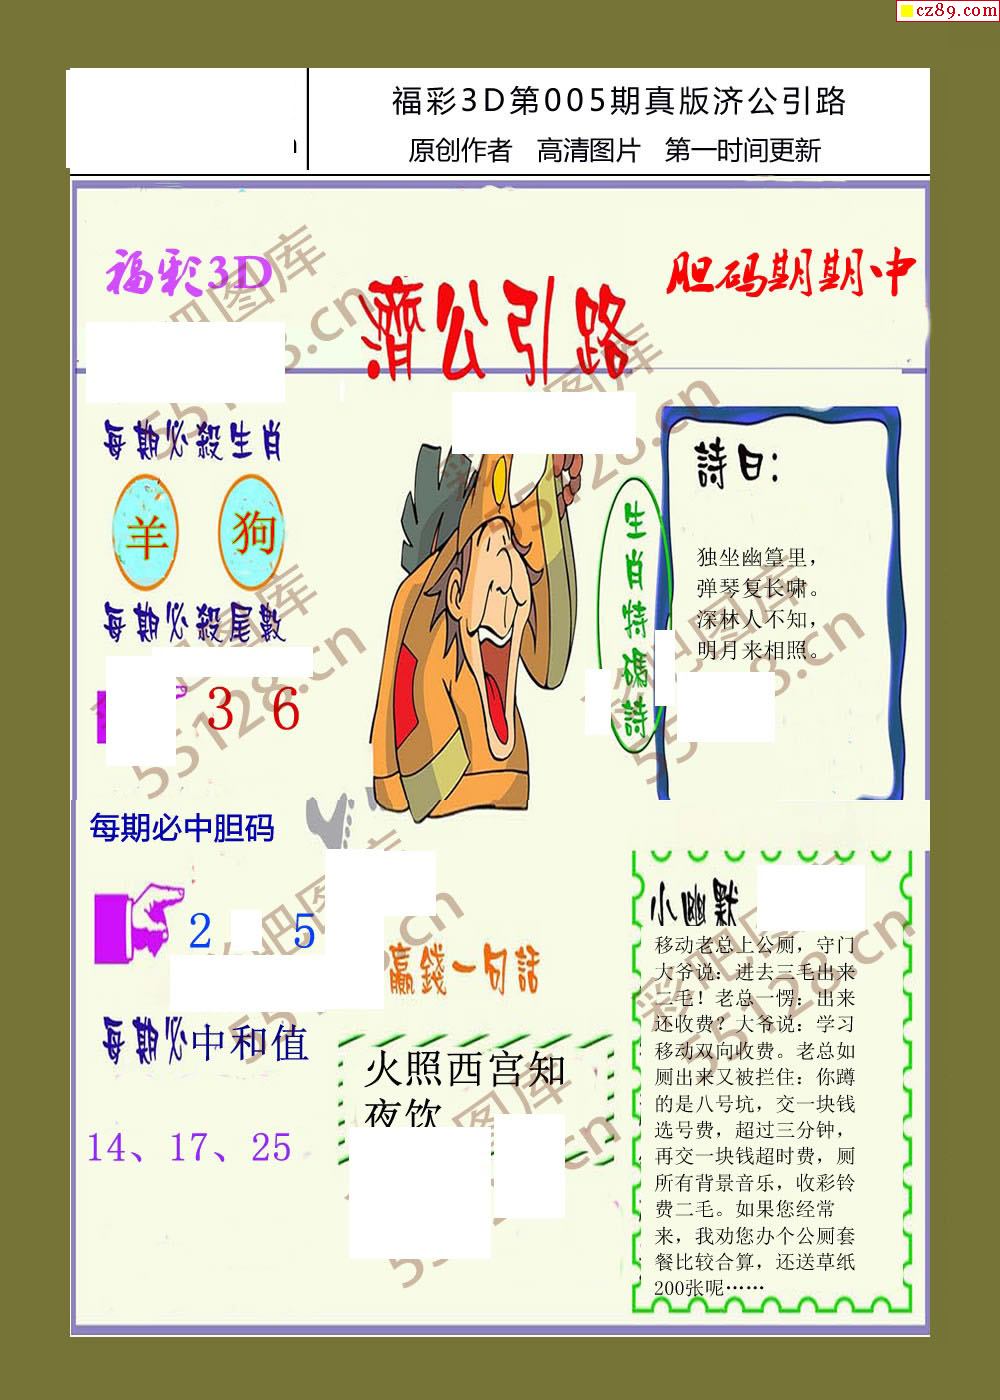 cz89.com
福彩3D第005期真版济公引路
原创作者 高清图片 第一时间更新
福彩3D
濟公引路
胆码期期中
每期必殺生肖
羊 狗
每期必殺尾數
3 6
每期必中胆码
2 5
每期必中和值
14、17、25
生肖特碼詩
詩曰：
独坐幽篁里，
弹琴复长啸。
深林人不知，
明月来相照。
贏錢一句話
火照西宫知
夜饮
小幽默
移动老总上公厕，守门
大爷说：进去三毛出来
二毛！老总一愣：出来
还收费？大爷说：学习
移动双向收费。老总如
厕出来又被拦住：你蹲
的是八号坑，交一块钱
选号费，超过三分钟，
再交一块钱超时费，厕
所有背景音乐，收彩铃
费二毛。如果您经常
来，我劝您办个公厕套
餐比较合算，还送草纸
200张呢……
彩吧图库
55128.cn